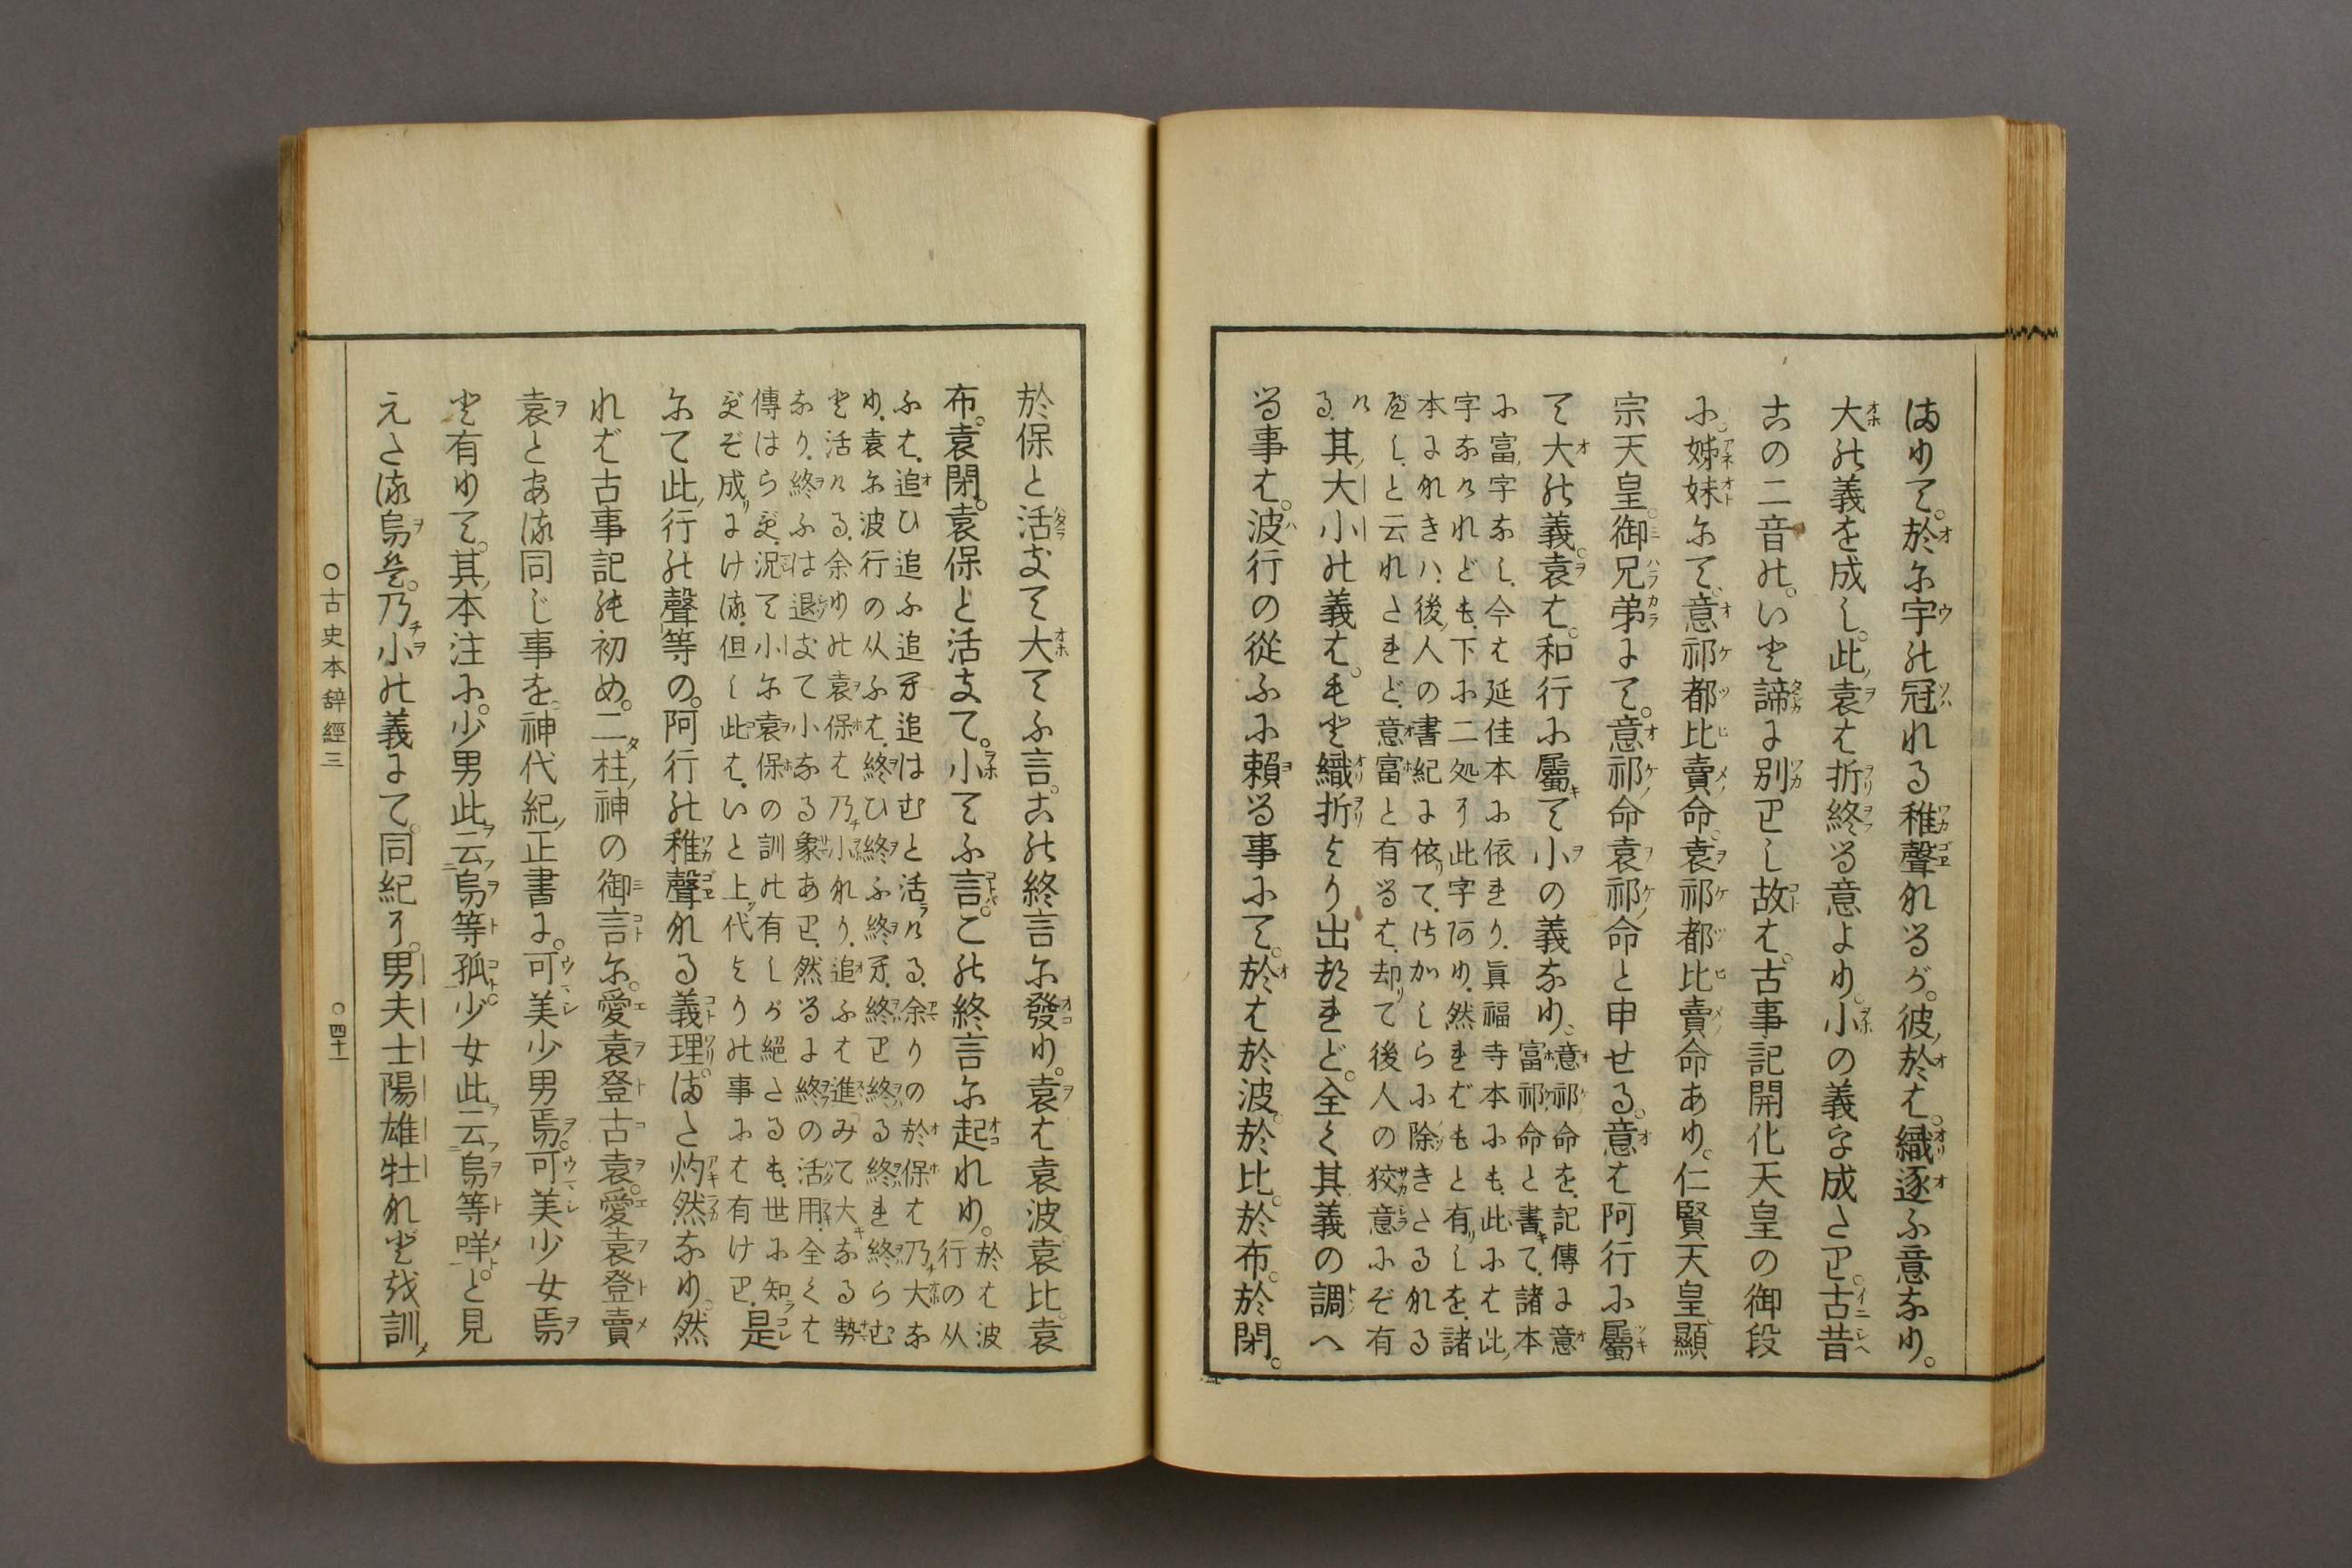 はりて。於に宇の冠れる稚聲なるが。彼於は。織逐ふ意なり。
大の義を成し。此袁は折終る意より。小の義を成さむ。古昔
この二音の。いと諦に別りし故は。古事記開化天皇の御段
に。姊妹にて。意祁都比賣命。袁祁都比賣命あり。仁賢天皇顯
宗天皇。御兄弟にて。意祁命袁祁命と申せる。意は阿行に屬
て大の義。袁は。和行に屬て小の義なり。
意祁命を。記傳に意
富祁命と書て。諸本
に富字なし。今は延佳本に依れり。眞福寺本にも。此には此
字なけれども。下に二処に此字あり。然ればもと有しを。諸
本になきハ。後人の書紀に依りて。さかしらに除きさるなる
べし。と云れされど。意富と有るは。却て後人の狡意にぞ有
る。其大小の義は。もと織折より出たれど。全く其義の調へ
る事は。波行の從ふに賴る事にて。於は於波。於比。於布。於閇。
於保と活きて大てふ言。この終言に發り。袁は袁波。袁比。袁
布。袁閇。袁保と活きて。小てふ言。この終言に起れり。
於は波
行の从
ふは。追ひ追ふ追へ追はむと活ける。余りの於保は乃大な
り。袁に波行の从ふは。終ひ終ふ終へ。終む終る終れ終らむ
と活ける。余りの袁保は乃小なり。追ふは進みて大なる勢
なり。終ふは退きて小なる象あり。然るに終の活用。全くは
傳はらず。況て小に袁保の訓の有しが絕さるも。世に知
ずぞ成にける。但し此は。いと上代よりの事には有けむ。是
にて此行の聲等の。阿行の稚聲なる義理はた灼然なり。然
れば古事記の初め。二柱神の御言に。愛袁登古袁。愛袁登賣
袁とある同じ事を。神代紀正書に。可美少男焉。可美少女焉
と有りて。其本注に。少男此云烏等孤。少女此云烏等咩と見
えさる烏は。乃小の義にて。同紀に。男夫士陽雄牡などを訓
○古史本辭經三
○四十一